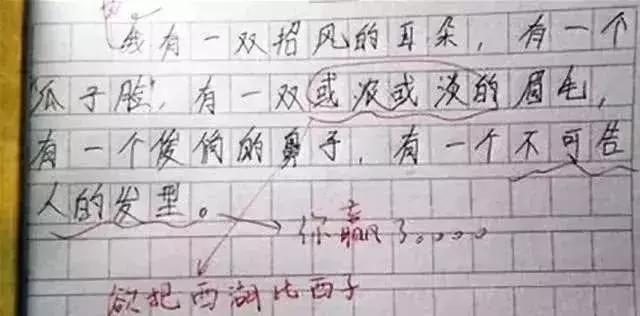 我有一双招风的耳朵，有一个
瓜子脸，有一双或浓或淡的眉毛，
有一个俊俏的鼻子，有一个不可告
人的发型。
你赢了。。。。
欲把西湖比西子